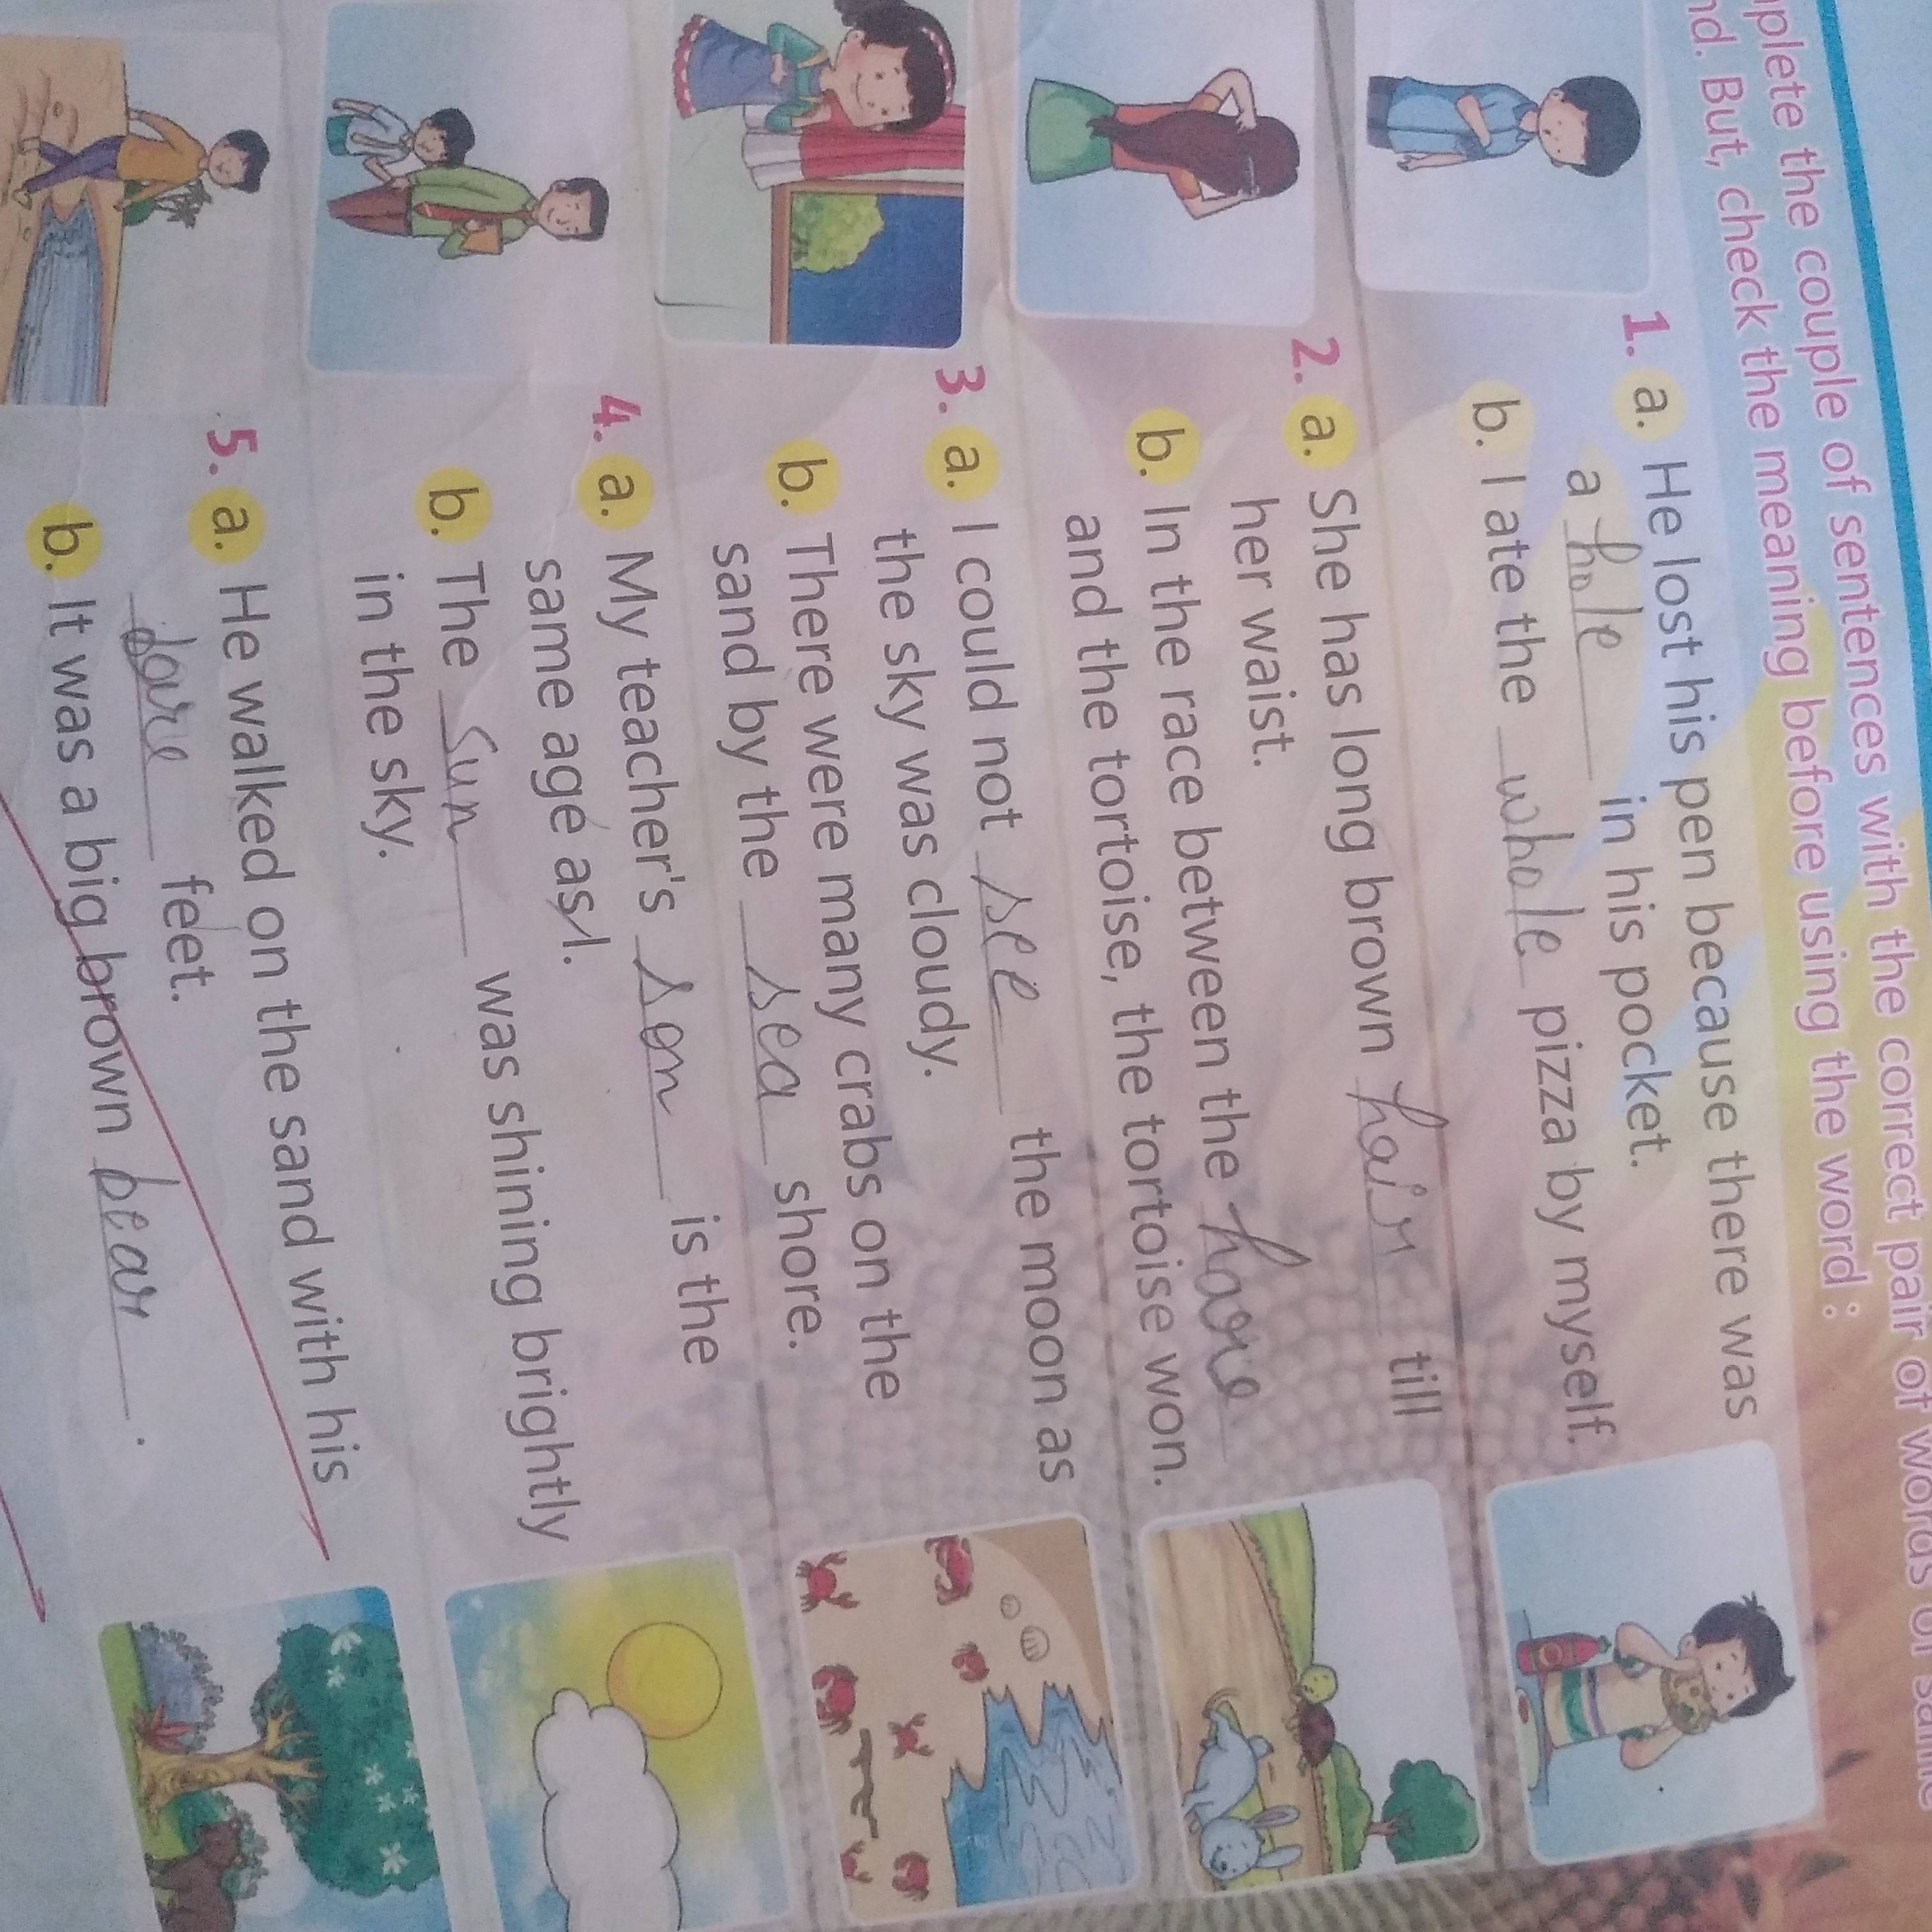 plete the couple of sentences with the correct pair of words of same
nd. But, check the meaning before using the word :
1. a. He lost his pen because there was
a hole in his pocket.
b. I ate the whole pizza by myself.
2. a. She has long brown hair till
her waist.
b. In the race between the hare
and the tortoise, the tortoise won.
3. a. I could not see the moon as
the sky was cloudy.
b. There were many crabs on the
sand by the sea shore.
4. a. My teacher's son is the
same age as I.
b. The Sun was shining brightly
in the sky.
5. a. He walked on the sand with his
feet.
b. It was a big brown bear.